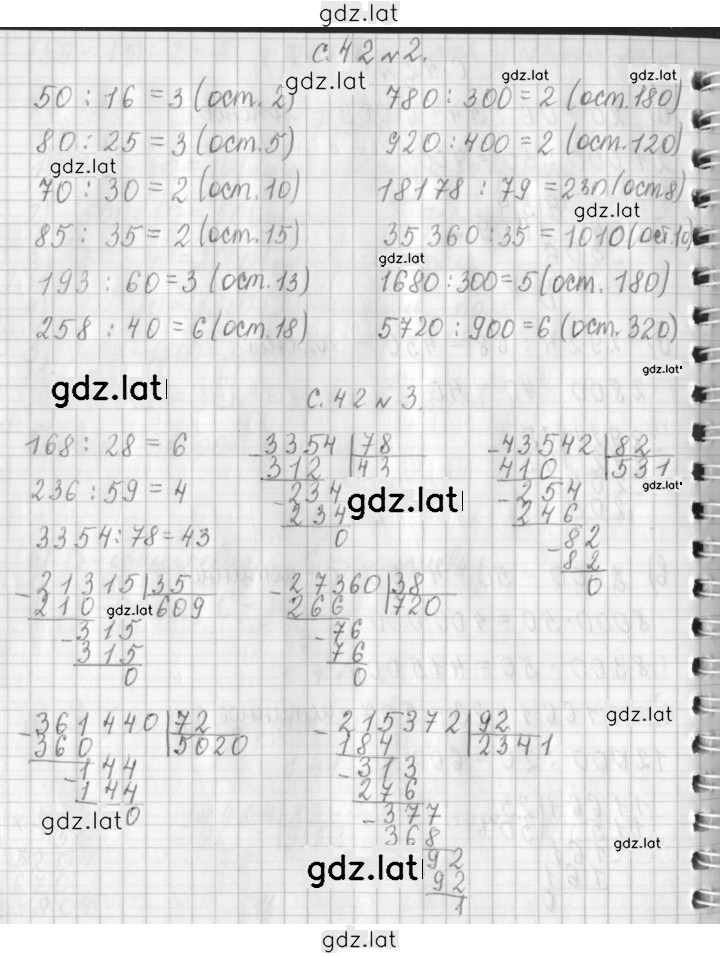 gdz.lat
с. 42 № 2.
50 : 16 = 3 (ост. 2)
80 : 25 = 3 (ост. 5)
70 : 30 = 2 (ост. 10)
85 : 35 = 2 (ост. 15)
193 : 60 = 3 (ост. 13)
258 : 40 = 6 (ост. 18)
780 : 300 = 2 (ост. 180)
920 : 400 = 2 (ост. 120)
18178 : 79 = 230 (ост 8)
35 360 : 35 = 1010 (ост. 10)
1680 : 300 = 5 (ост. 180)
5720 : 900 = 6 (ост. 320)
gdz.lat
gdz.lat
gdz.lat
gdz.lat
gdz.lat
gdz.lat
gdz.lat
gdz.lat
с. 42 № 3.
168 : 28 = 6
236 : 59 = 4
3354 : 78 = 43
- 3354 | 78
312 | 43
- 234
234
0
- 43542 | 82
410 | 531
- 254
246
- 82
82
0
gdz.lat
gdz.lat
- 21315 | 35
210 | 609
- 315
315
0
gdz.lat
- 27360 | 38
266 | 720
- 76
76
0
- 361440 | 72
360 | 5020
- 144
144
0
gdz.lat
- 215372 | 92
184 | 2341
- 313
276
- 377
368
92
92
1
gdz.lat
gdz.lat
gdz.lat
gdz.lat